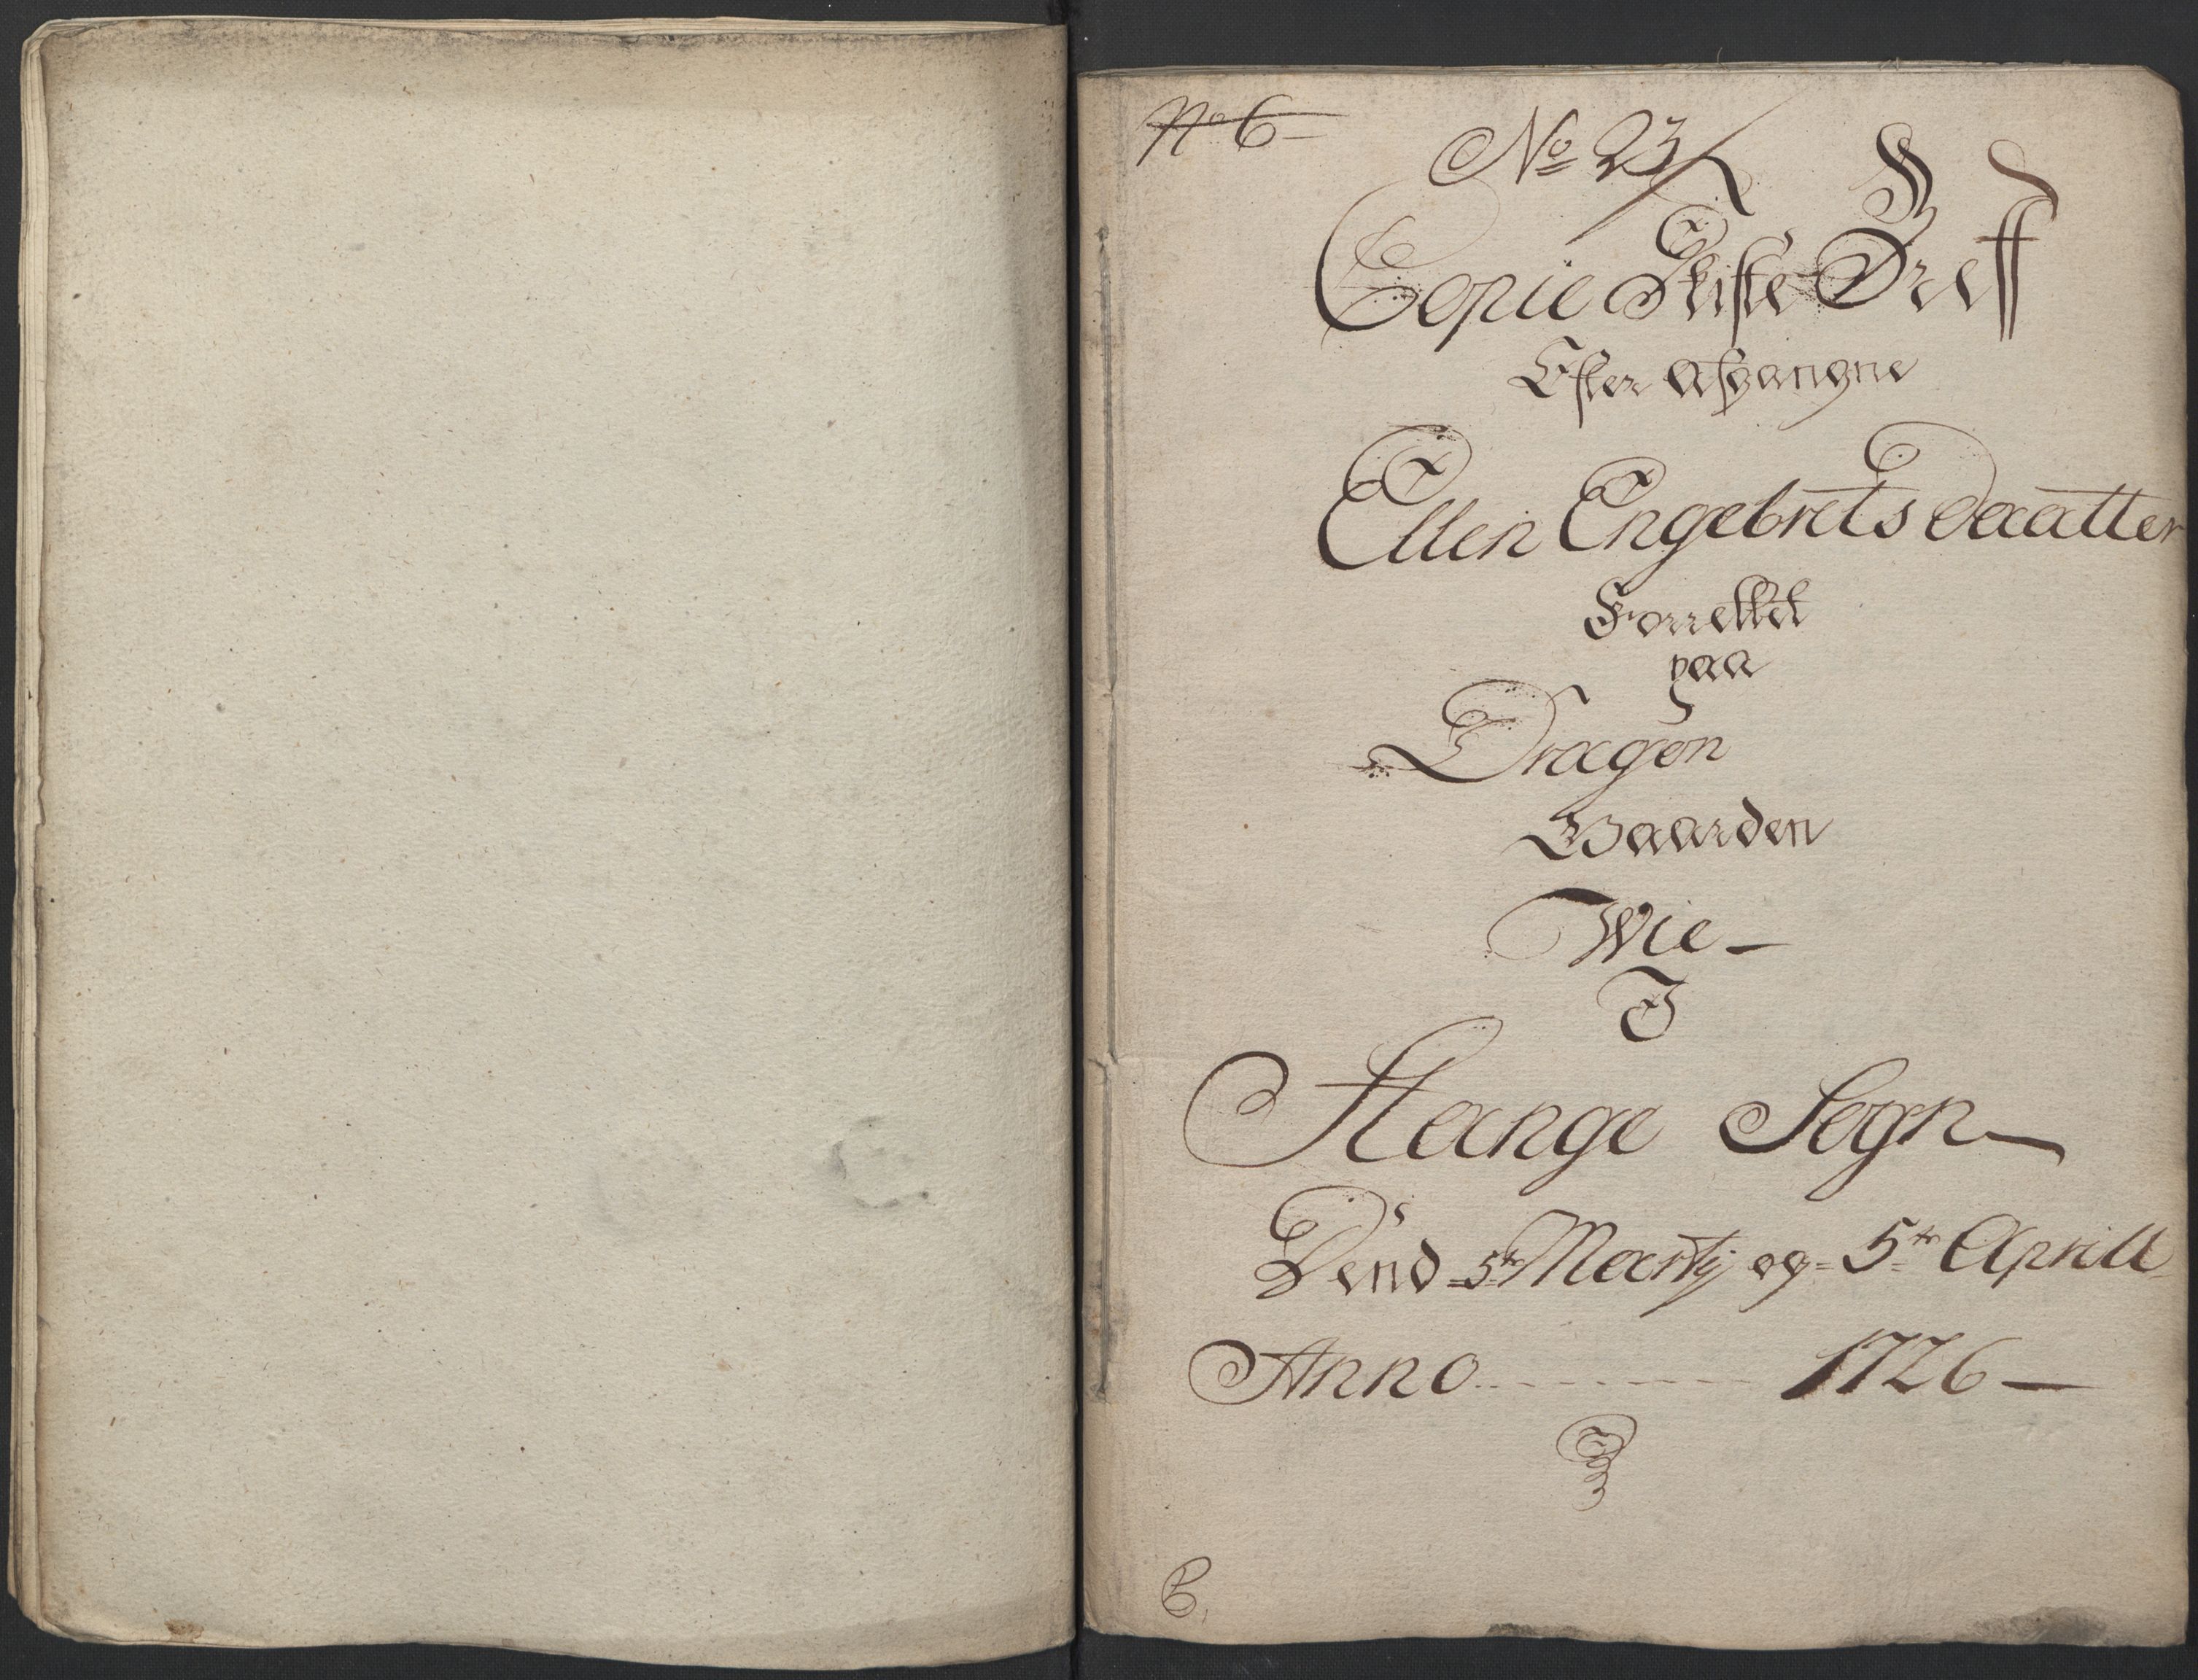 No 6
No 23
Copie Skifte Breff
Efter Afgangne
Ellen Engebrets Daatter
Forrettet
paa
Dragon
Gaarden
Wie
I
Stange Sogn
Dend 5te Martij og 5te Aprill
Anno 1726